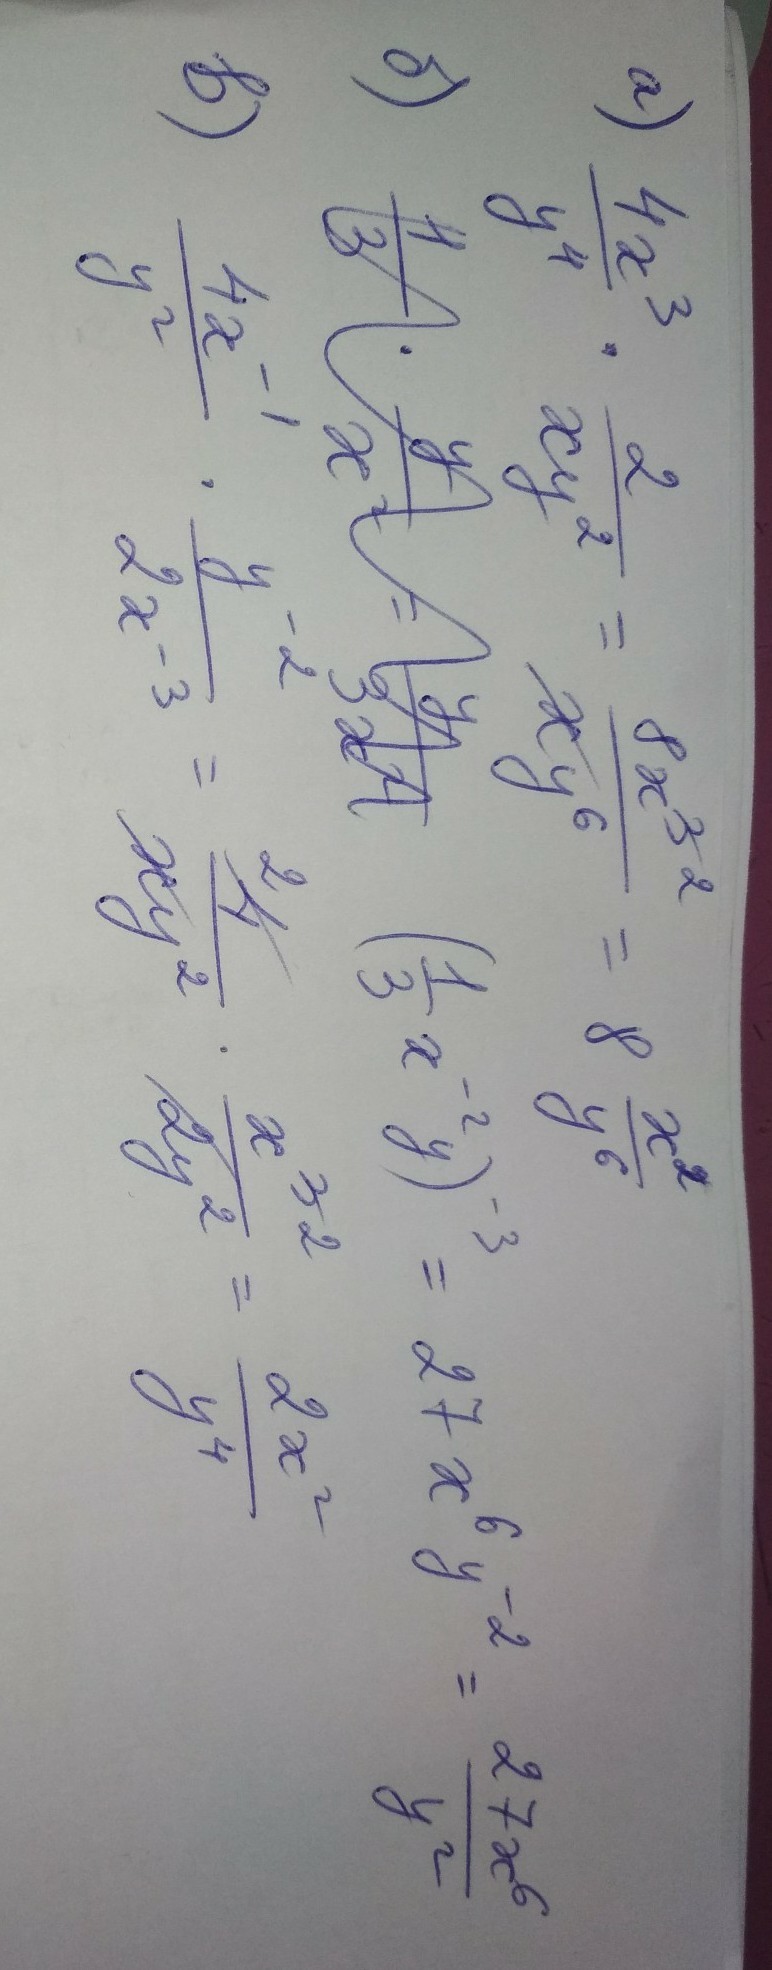 а) 4x³/y⁴ · 2/xy² = 8x³ ²/xy⁶ = 8 x²/y⁶
б) 1/3 · y/x² = y/3x² (1/3 x⁻² y)⁻³ = 27x⁶y⁻² = 27x⁶/y²
в) 4x⁻¹/y² · y⁻²/2x⁻³ = 2 4/xy² · x³ ²/2y² = 2x²/y⁴